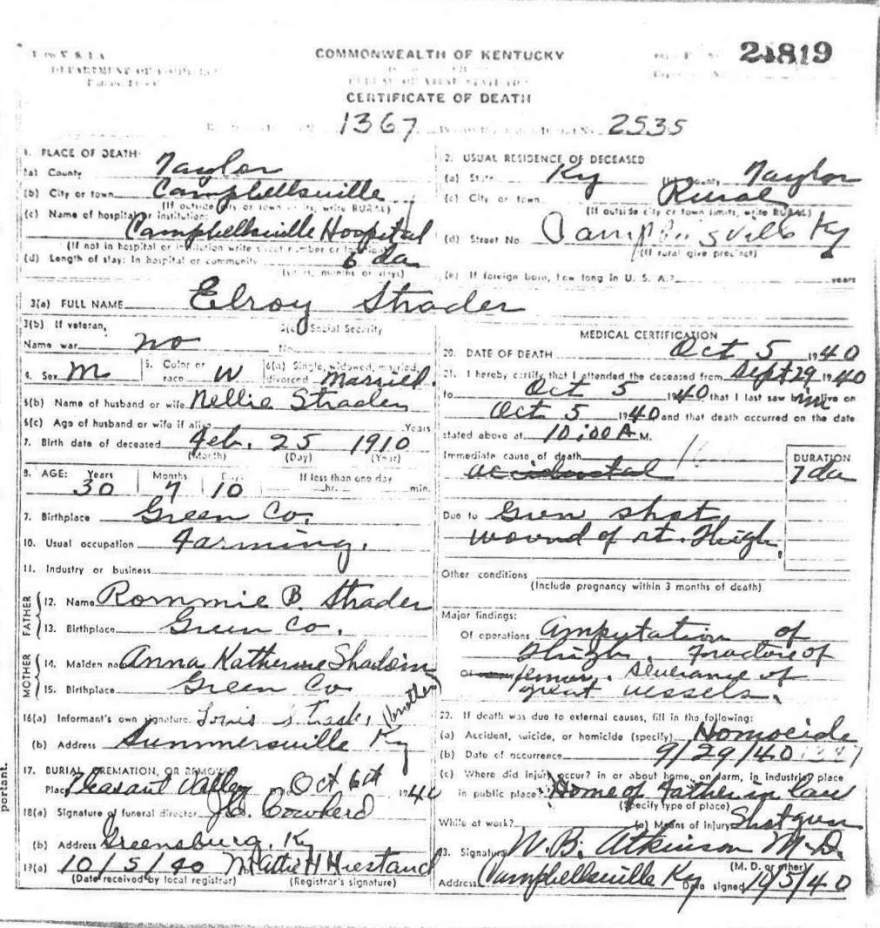 COMMONWEALTH OF KENTUCKY
24819
CERTIFICATE OF DEATH
1367 2535
1. PLACE OF DEATH:
(a) County Taylor
(b) City or town Campbellsville
(If outside city or town limits, write RURAL)
(c) Name of hospital or institution:
Campbellsville Hospital
(If not in hospital or institution write street number or location)
(d) Length of stay: In hospital or community 6 da
(years, months or days)
2. USUAL RESIDENCE OF DECEASED
(a) State Ky (b) County Taylor
(c) City or town Rural
(If outside city or town limits, write RURAL)
(d) Street No. Campbellsville Ky
(If rural give precinct)
(e) If foreign born, how long in U. S. A.? years
3(a) FULL NAME Elroy Strader
3(b) If veteran,
Name war no
3(c) Social Security
No.
4. Sex M
5. Color or
race W
6(a) Single, widowed, married,
divorced Married.
6(b) Name of husband or wife Nellie Strader
6(c) Age of husband or wife if alive Years
7. Birth date of deceased Feb. 25 1910
(Month) (Day) (Year)
8. AGE: Years Months Days If less than one day
30 7 10 hr. min.
9. Birthplace Green Co.
10. Usual occupation Farming.
11. Industry or business
FATHER
12. Name Rommie B. Strader
13. Birthplace Green Co.
MOTHER
14. Maiden name Anna Katherine Shadoin
15. Birthplace Green Co
16(a) Informant's own signature Louis Strader (brother)
(b) Address Summersville Ky
17. BURIAL, CREMATION, OR REMOVAL
Place Pleasant Valley Oct 6th 1940
18(a) Signature of funeral director J.C. Cowherd
(b) Address Greensburg, Ky
19(a) 10/5/40 Mattie H Hiestand
(Date received by local registrar) (Registrar's signature)
MEDICAL CERTIFICATION
20. DATE OF DEATH Oct 5 1940
21. I hereby certify that I attended the deceased from Sept 29 1940
to Oct 5 1940 that I last saw him alive on
Oct 5 1940 and that death occurred on the date
stated above at 10:00 A M.
Immediate cause of death
accidental
DURATION
7 da
Due to Gun shot
wound of rt. Thigh.
Other conditions
(Include pregnancy within 3 months of death)
Major findings:
Of operations Amputation of
Thigh. Fracture of
femur. Severance of
great vessels.
22. If death was due to external causes, fill in the following:
(a) Accident, suicide, or homicide (specify) Homocide
(b) Date of occurrence 9/29/40
(c) Where did injury occur? in or about home, on farm, in industrial place
in public place? Home of Father in law
(Specify type of place)
While at work? (e) Means of injury Shotgun
23. Signature W. B. Atkinson M.D.
(M. D. or other)
Address Campbellsville Ky Date signed 10/5/40
portant.